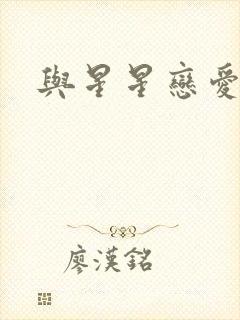 與星星戀愛
廖漢銘